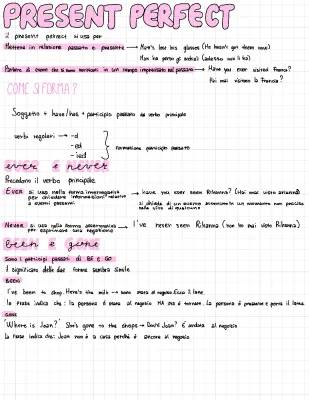 PRESENT PERFECT
il present perfect si usa per
Mettere in relazione passato e presente → Mark's lost his glasses (He hasn't got them now)
Mark ha perso gli occhiali (adesso non li ha)
Parlare di eventi che si sono verificati in un tempo imprecisato nel passato → Have you ever visited France?
Hai mai visitato la Francia?
COME SI FORMA?
Soggetto + have/has + participio passato da verbo principale
verbi regolari → -d
-ed
-ied
formazione participio passato
ever e never
Precedono il verbo principale
Ever si usa nella forma interrogativa per chiedere informazioni relative a eventi passati → have you ever seen Rihanna? (Hai mai visto Rihanna?)
si chiede di un evento avvenuto in un momento non precisato nella vita di qualcuno
Never si usa nella forma affermativa per esprimere una negazione → I've never seen Rihanna (non ho mai visto Rihanna)
been e gone
Sono i participi passati di BE e GO
il significato delle due forme sembra simile
BEEN
I've been to shop. Here's the milk → sono stata al negozio. Ecco il latte.
la frase indica che: la persona è stata al negozio MA ora è tornata. La persona è presente e porta il latte.
GONE
'Where is Joan?' She's gone to the shops → Dov'è Joan? È andata al negozio
la frase indica che: Joan non è a casa perché è ancora al negozio